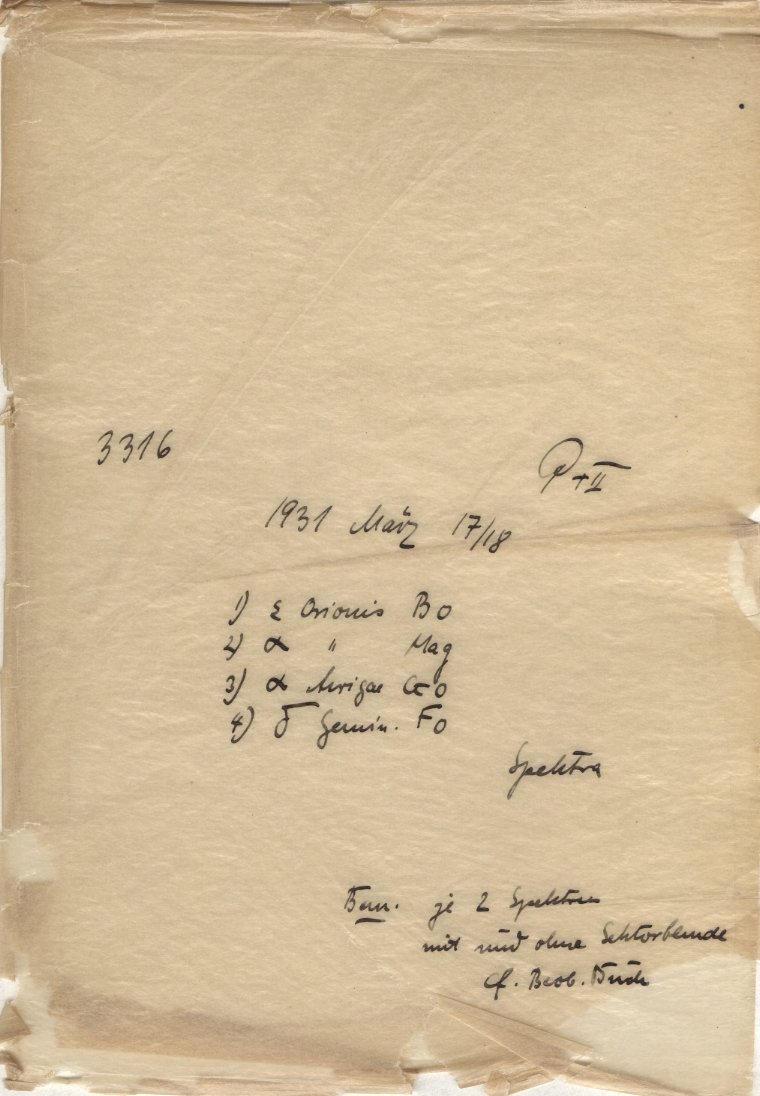 3316
P+II
1931 März 17/18
1) ε Orionis B0
2) α " Mag
3) α Aurigae G0
4) δ Gemin. F0
Spektra
Bem. je 2 Spektren
mit und ohne Sektorblende
cf. Beob. Buch